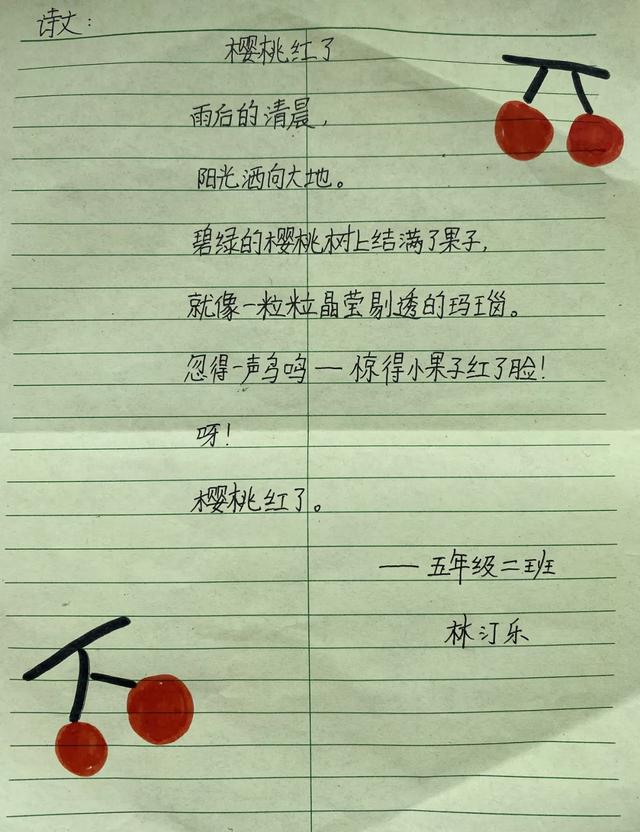 诗文：
樱桃红了
雨后的清晨，
阳光洒向大地。
碧绿的樱桃树上结满了果子，
就像一粒粒晶莹剔透的玛瑙。
忽得一声鸟鸣——惊得小果子红了脸！
呀！
樱桃红了。
——五年级二班
林汀乐